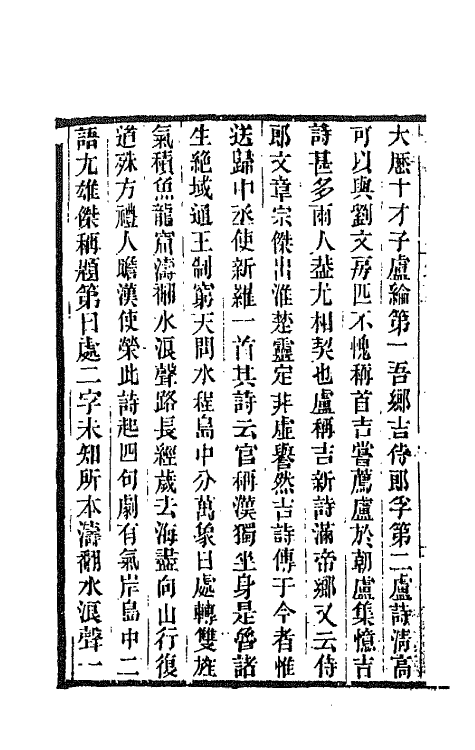 大厯十才子盧綸第一吾鄉吉侍郎孚第二盧詩淸高
可以與劉文房匹不愧稱首吉嘗薦盧於朝盧集憶吉
詩甚多兩人葢尤相契也盧稱吉新詩滿帝鄉又云侍
郎文章宗傑出淮楚靈定非虛譽然吉詩傳于今者惟
送歸中丞使新羅一首其詩云官稱漢獨坐身是魯諸
生絕域通王制窮天問水程島中分萬象日處轉雙旌
氣積魚龍窟濤翻水浪聲路長經歲去海盡向山行復
道殊方禮人瞻漢使榮此詩起四句劇有氣岸島中二
語尤雄傑稱題第日處二字未知所本濤翻水浪聲一